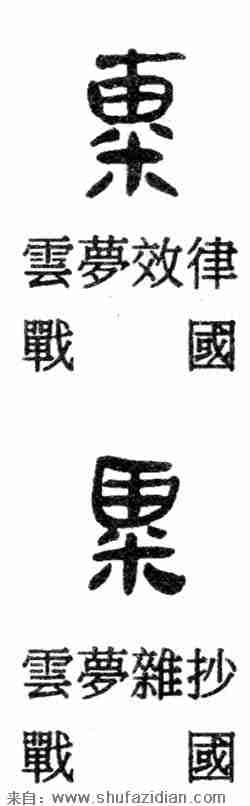 雲夢效律
戰國
雲夢雜抄
戰國
来自：www.shufazidian.com